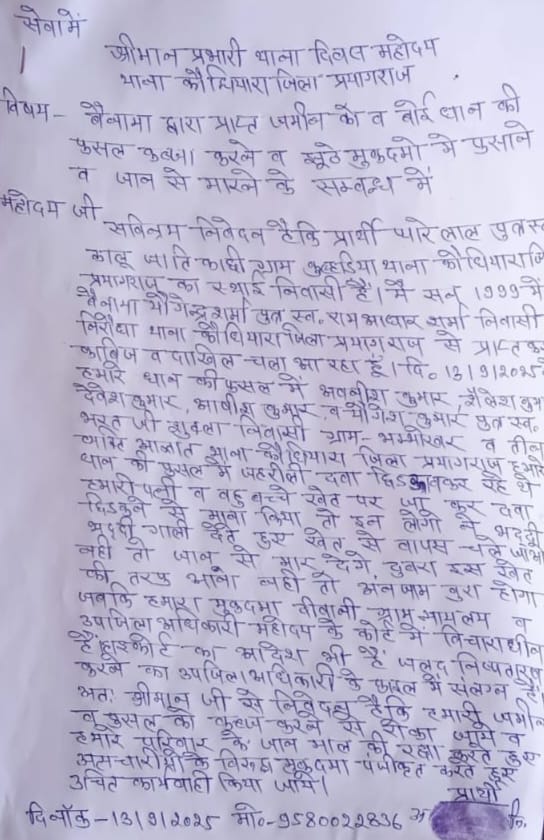 सेवा में
श्रीमान प्रभारी थाना दिवस महोदय
थाना कौंधियारा जिला प्रयागराज
विषय - बैनामा द्वारा प्राप्त जमीन को व बोई धान की
फसल कब्जा करने व झूठे मुकदमो मे फसाने
व जान से मारने के सम्बन्ध में
महोदय जी
सविनय निवेदन है कि प्रार्थी प्यारे लाल पुत्र स्व
कालू जाति काछी ग्राम कुल्हडिया थाना कौंधियारा जि
प्रयागराज का स्थाई निवासी हैं। मै सन् 1999 में
बैनामा योगेन्द्र शर्मा पुत्र स्व. राम आधार शर्मा निवासी
निरौधा थाना कौंधियारा जिला प्रयागराज से प्राप्त कर
काबिज व दाखिल चला आ रहा हूँ। दि. 13/9/2025 को
हमारे धान की फसल में अवनीश कुमार, शैलेश कुमार
देवेश कुमार, आशीष कुमार व योगेश कुमार पुत्र स्व.
भरत जी शुक्ला निवासी ग्राम - भम्भोखर व तीन
व्यक्ति अज्ञात थाना कौंधियारा जिला प्रयागराज हमारे
धान की फसल में जहरीली दवा छिडकवकर रहे थे
हमारी पत्नी व बहु बच्चे खेत पर जा कर दवा
छिडकने से माना किया तो इन लोगो ने भददी
भददी गाली देते हुए खेत से वापस चले जाओ
नही तो जान से मार देगे, दुबरा इस खेत
की तरफ आना नही तो अनजाम बुरा होगा
जबकि हमारा मुकदमा दीवानी ग्राम न्यायलय व
उपजिला अधिकारी महोदय के कोर्ट में विचाराधीन
है हाईकोर्ट का आदेश भी है जलद निष्तारण
करने का उपजिला अधिकारी के में संलग्न है।
अतः श्रीमान जी से निवेदन है कि हमारी जमीन
व फसल को कब्ज करने से रोका जाये व
हमारे परिवार के जान माल की रक्षा करते हुए
के विरुद्ध मुकदमा पंजीकृत करते हुए
उचित कार्यवाही किया जाये।
प्रार्थी
दिनाँक - 13/9/2025 मो०- 9580022836 अ नि.